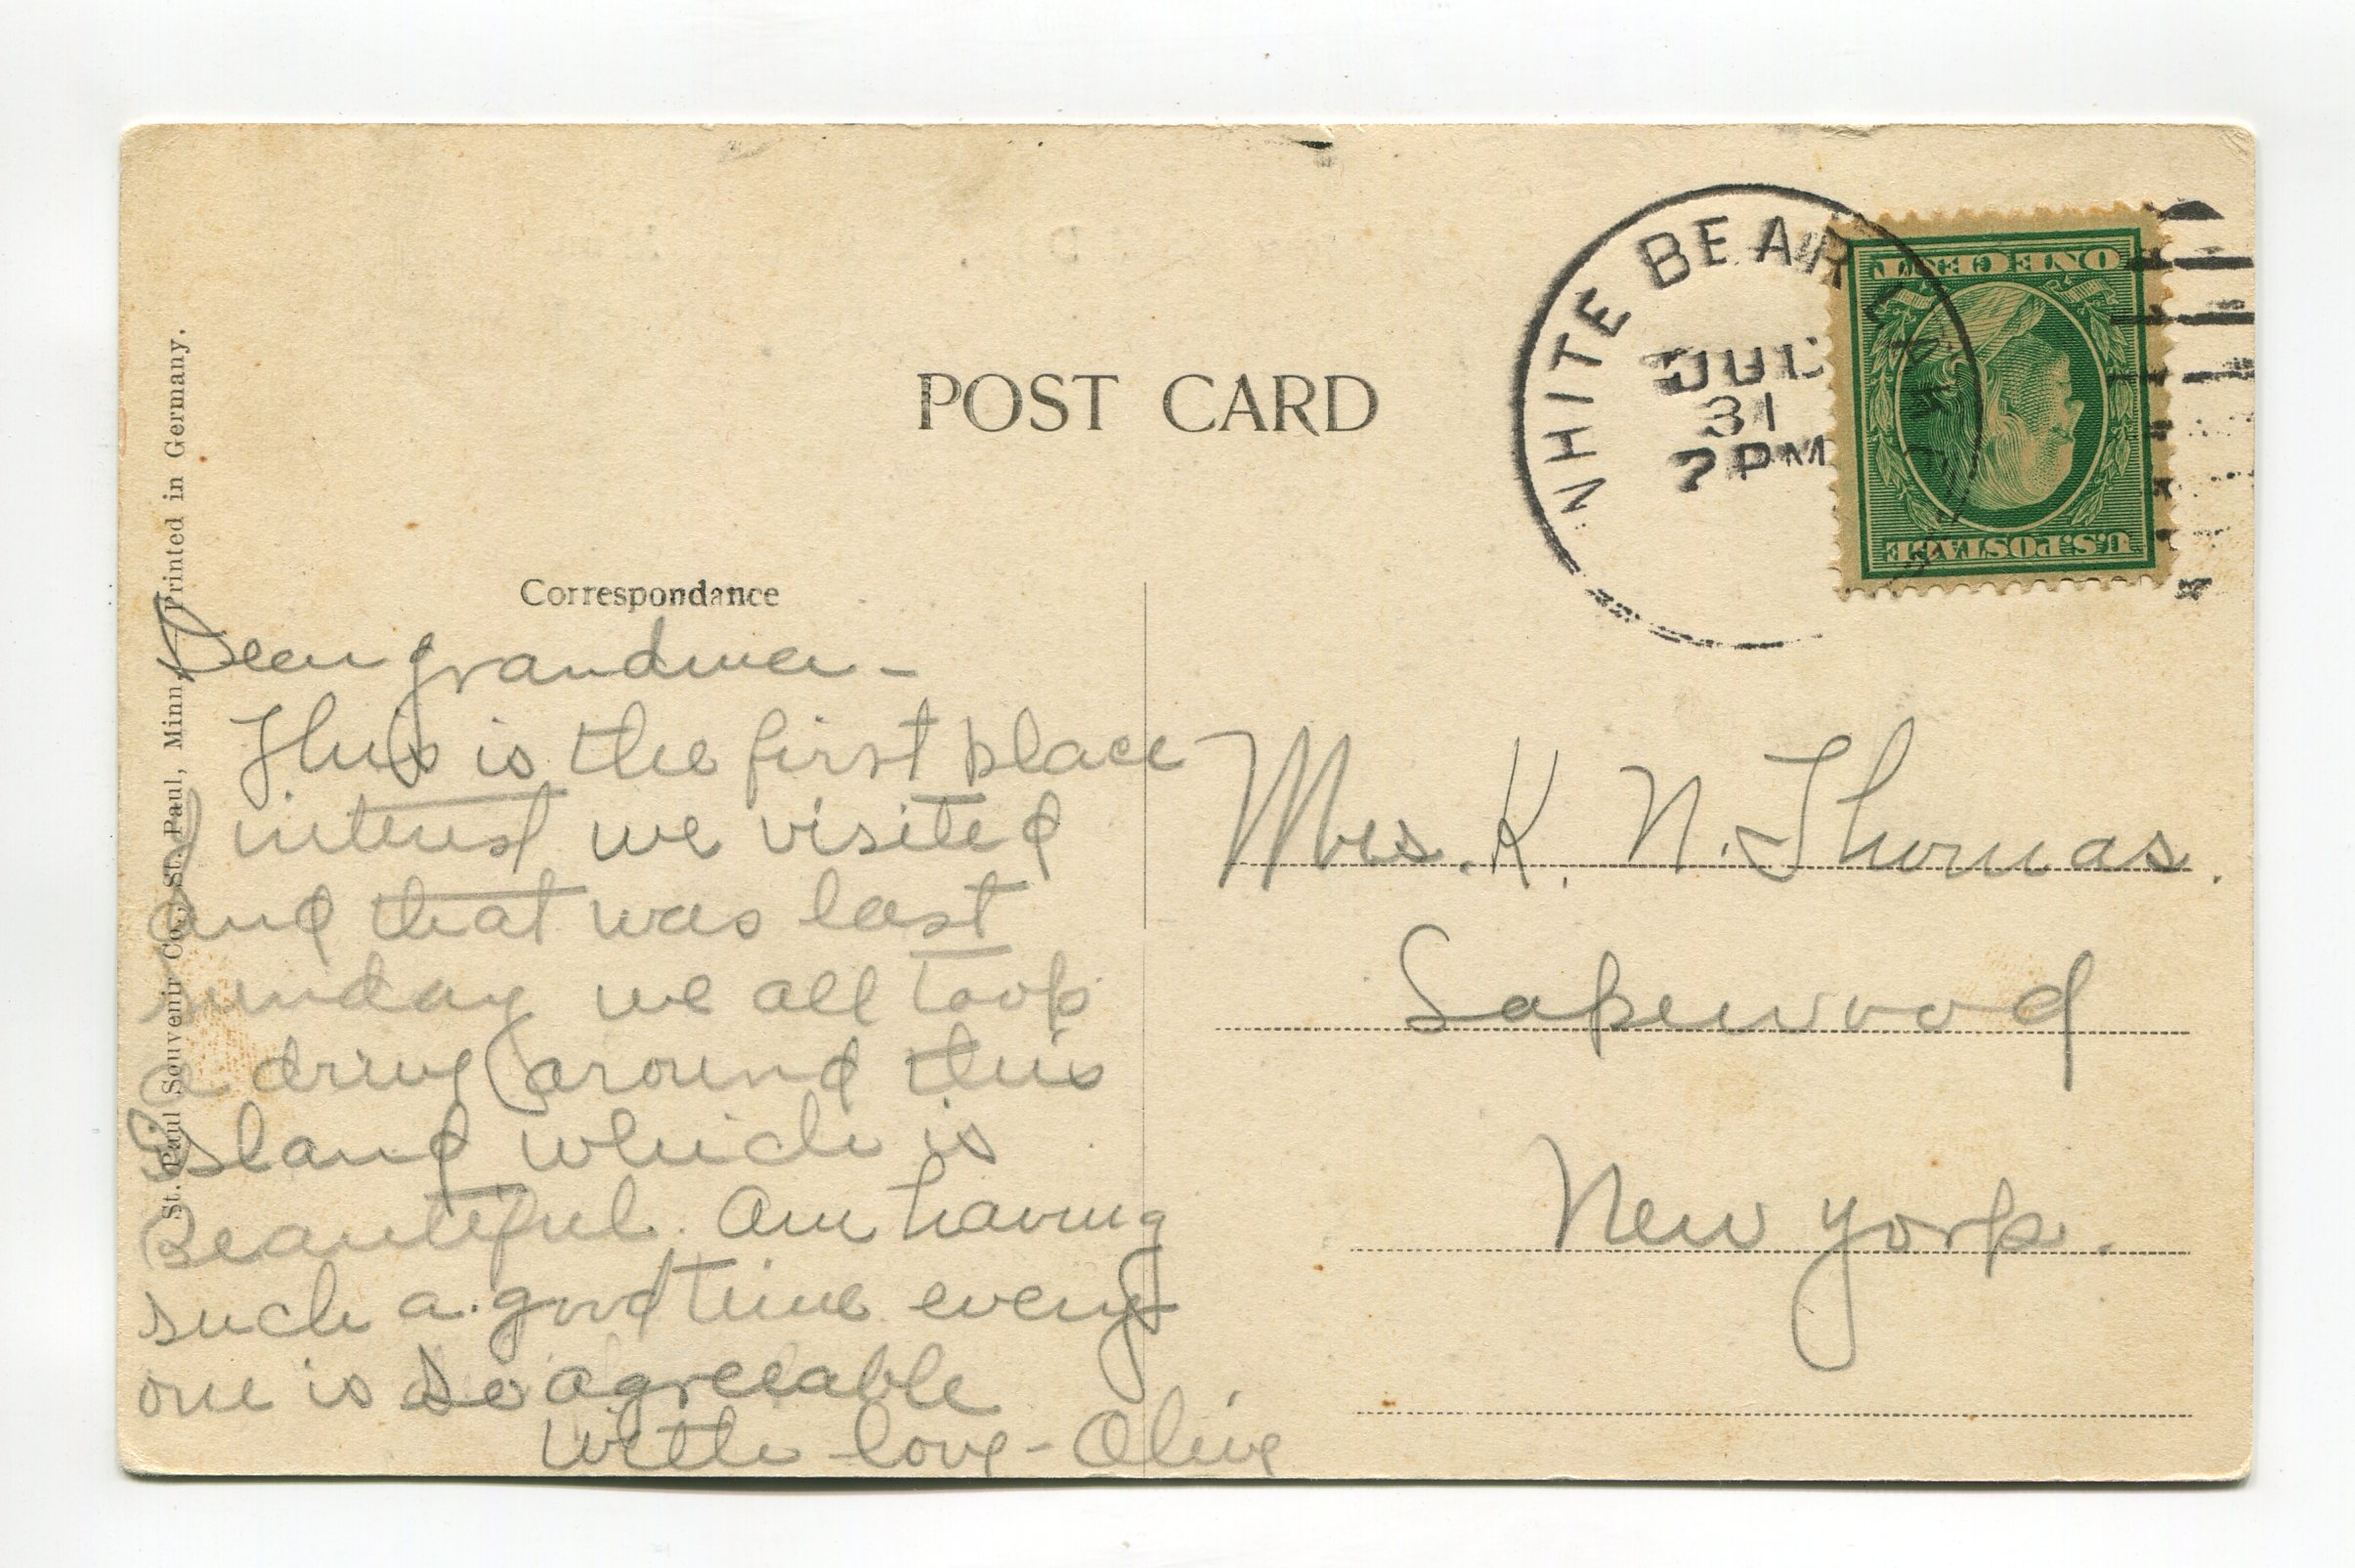 POST CARD
WHITE BEAR LAKE
JUL
31
7 PM
ONE CENT
U.S. POSTAGE
St. Paul Souvenir Co., St. Paul, Minn. Printed in Germany.
Correspondance
Dear grandma -
This is the first place
of interest we visited
and that was last
sunday we all took
a drive around this
island which is
Beautiful. Am having
such a good time every
one is so agreeable
with love - Olive
Mrs. K. N. Thomas.
Lakewood
New York.